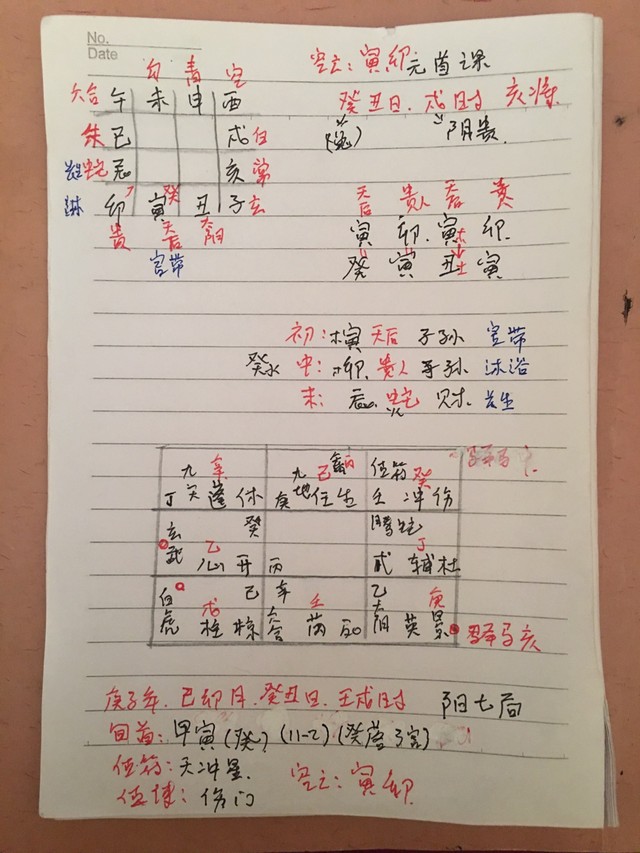 No.
Date
勾 青 空
空亡：寅卯 元首课
六合 午 未 申 酉
癸丑日、戌时 亥将
朱 巳 戌 白
阴贵
蛇 辰 亥 常
卯 寅 癸 丑 子 玄
贵 天后 太阴
冠带
天后 贵人 天后 贵
寅 卯 寅木 卯
癸 寅 丑土 寅
初：寅 天后 子孙 冠带
癸水 中：卯 贵人 子孙 沐浴
末：辰 蛇 财 长生
九天 辛 九地 己 丙 值符 癸 驿马
丁 蓬 休 庚 任 生 壬 冲 伤
玄武 癸 腾蛇
乙 心 开 丙 丁 辅 杜
白虎 己 辛 壬 乙 庚
戊 柱 惊 六合 芮 死 太阴 英 景 驿马亥
庚子年、己卯月、癸丑日、壬戌时 阳七局
旬首：甲寅(癸) (11-2) (癸落3宫)
值符：天冲星 空亡：寅卯
值使：伤门